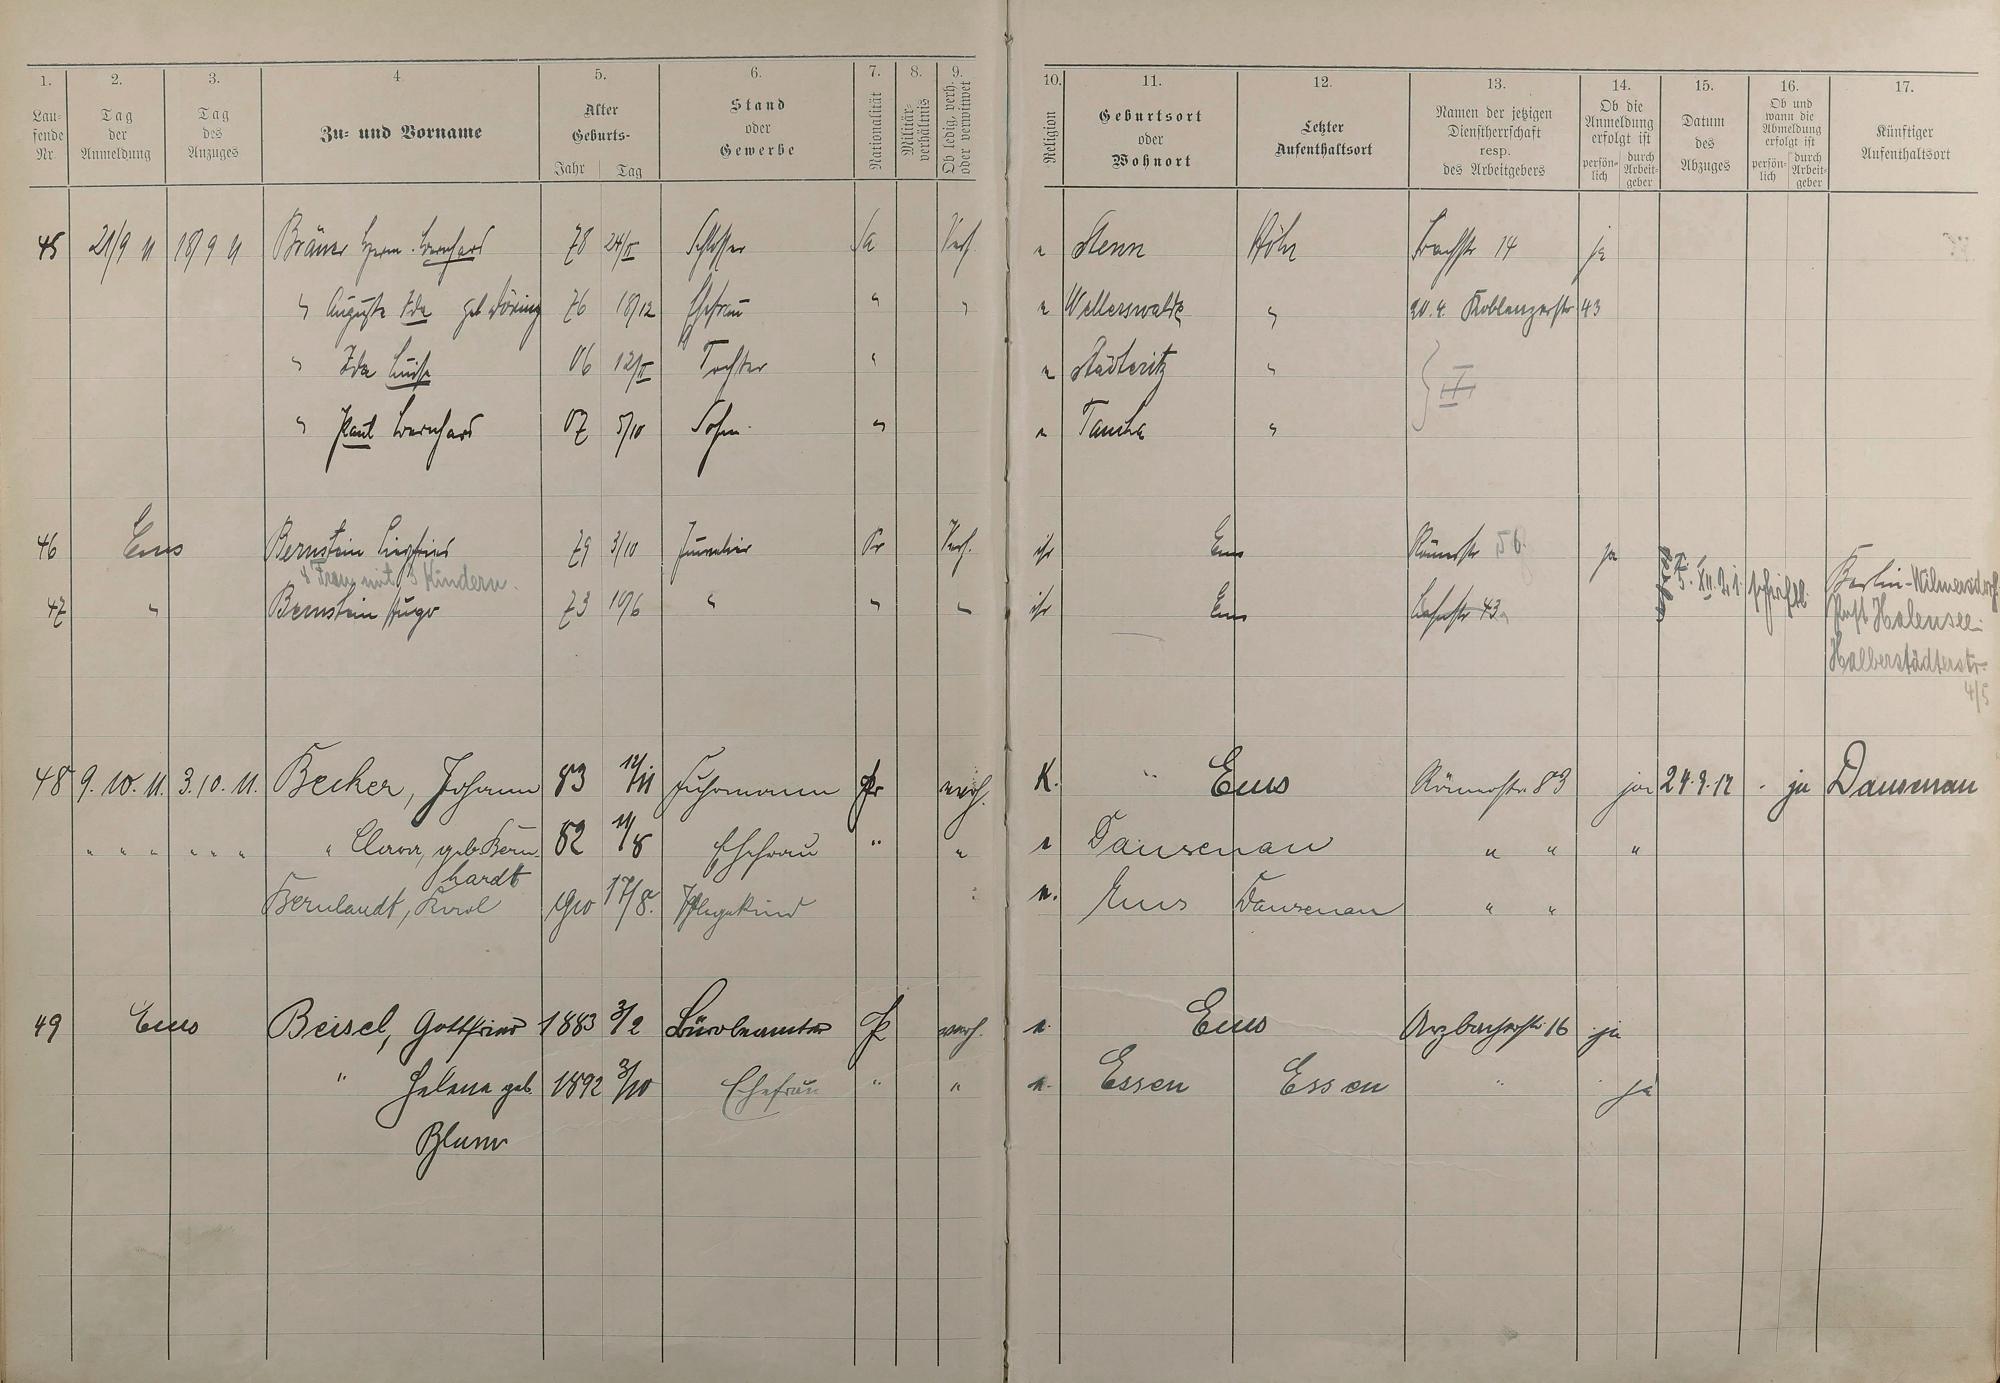 1. 2. 3. 4 5. 6. 7. 8. 9. 10. 11. 12. 13. 14. 15. 16. 17.
Lau-
fende
Nr.
Tag
der
Anmeldung
Tag
des
Anzuges
Zu- und Vorname
Alter
Geburts-
Jahr Tag
Stand
oder
Gewerbe
Nationalität
Militär-
verhältnis
Ob ledig, verh.
oder verwitwet
Religion
Geburtsort
oder
Wohnort
Letzter
Aufenthaltsort
Namen der jetzigen
Dienstherrschaft
resp.
des Arbeitgebers
Ob die
Anmeldung
erfolgt ist
persön-
lich
durch
Arbeit-
geber
Datum
des
Abzuges
Ob und
wann die
Abmeldung
erfolgt ist
persön-
lich
durch
Arbeit-
geber
Künftiger
Aufenthaltsort
45 21/9 11 18/9 11 Bräuer Herm. Bernhard 78 24/II Schlosser Sa Verh. Stenn Höhr Bachstr 14 ja
" Auguste Ida geb Döring 76 18/12 Ehefrau " " Wellerswalde " 20.4. Koblenzerstr 43
" Ida Luise 06 12/II Tochter " "
" Paul Bernhard 07 5/10 Sohn " Taucha "
46 Ems Bernstein Siegfried 79 3/10 Juwelier Pr Verh. isr Ems Römerstr 56 ja
& Frau mit 3 Kindern.
47 " Bernstein Hugo 73 10/6 " " " isr Ems 43a XII. 21. schriftl. Berlin-Wilmersdorf
Post Halensee
Halberstädterstr.
4/5
48 9. 10. 11. 3. 10. 11. Becker, Johann 83 12/11 Fuhrmann Pr verh. K. " Ems Römerstr. 83 ja 24.9.12 - ja Dausenau
" " " " " " " Clara, geb. Bern- 82 11/8 Ehefrau " " Dausenau " " "
hardt
Bernhardt, Karol 1910 17/8. Pflegekind Ems Dausenau " "
49 Ems Beisel, Gottfried 1883 3/2 Bürobeamter Pr verh. Ems Arzbacherstr 16 ja
" Helena geb. 1892 3/10 Ehefrau " " Essen Essen " ja
Blum